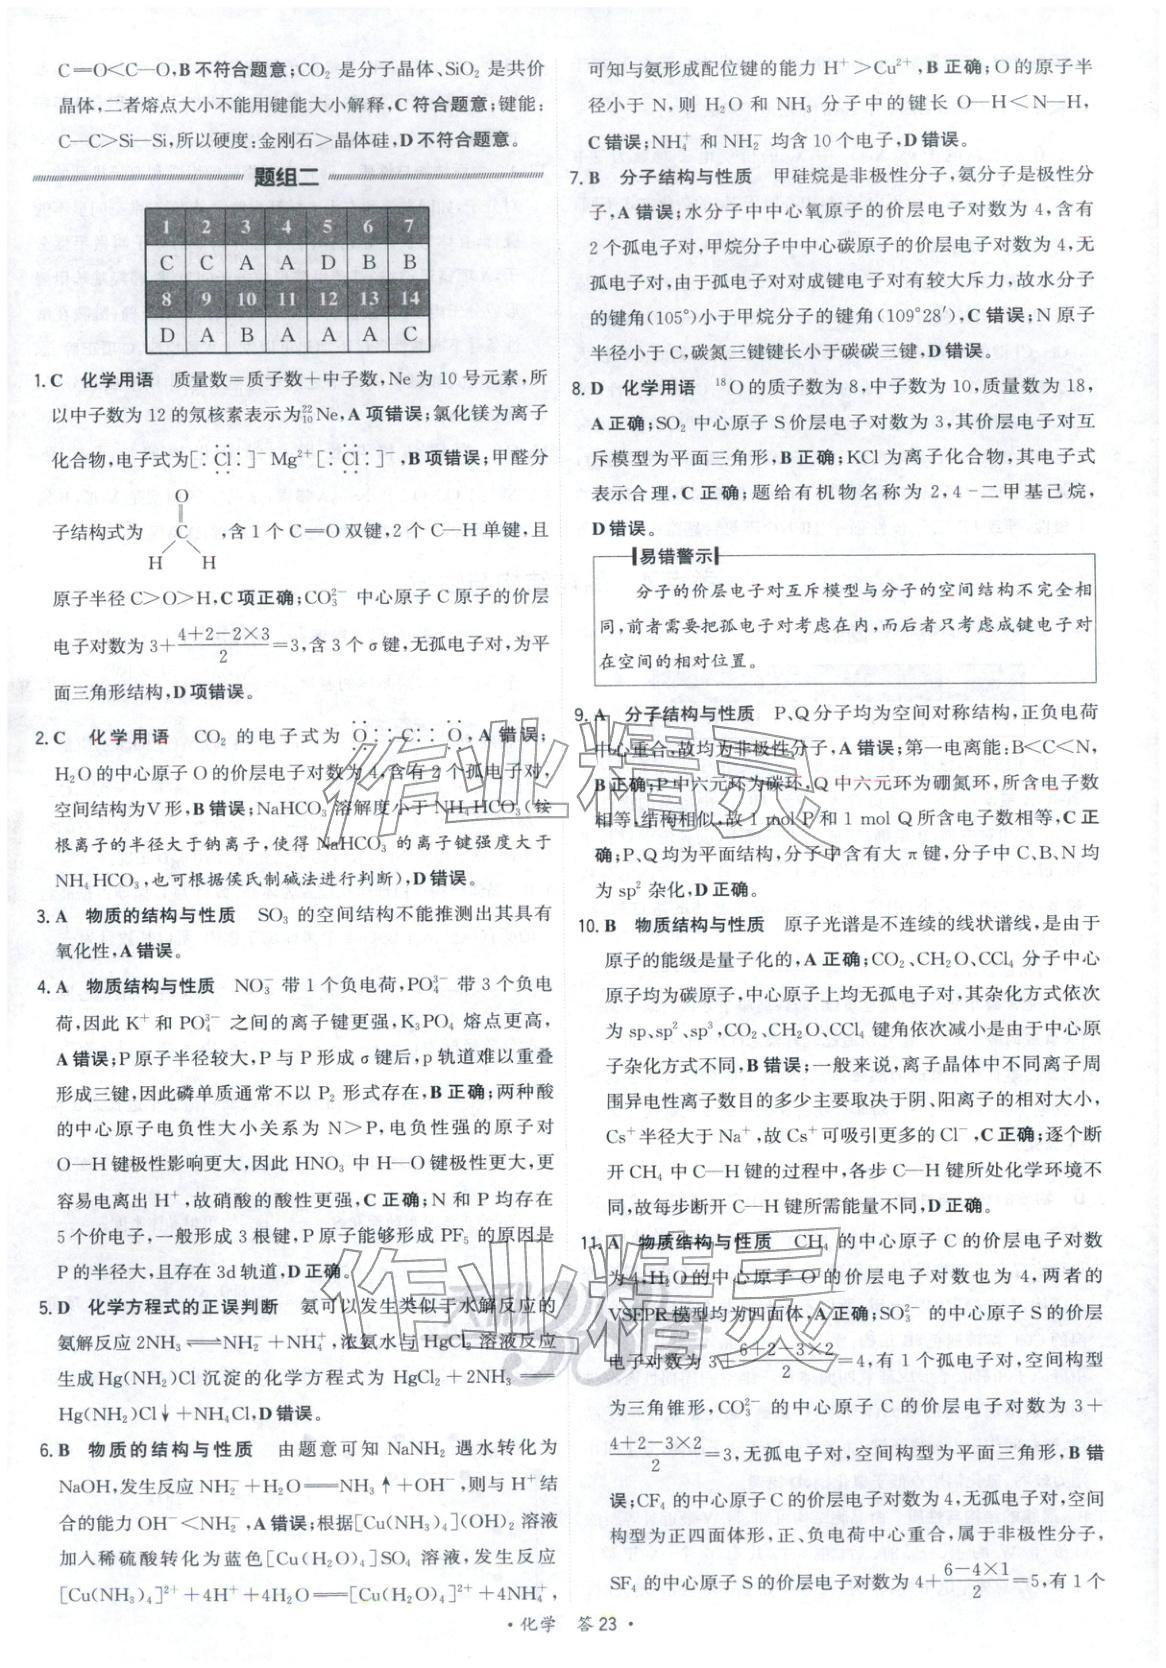 C=O<C—O,B不符合题意;CO₂ 是分子晶体、SiO₂ 是共价
晶体,二者熔点大小不能用键能大小解释,C符合题意;键能:
C—C>Si—Si,所以硬度:金刚石>晶体硅,D不符合题意。
题组二
1 2 3 4 5 6 7
C C A A D B B
8 9 10 11 12 13 14
D A B A A A C
1. C 化学用语 质量数=质子数+中子数,Ne为10号元素,所
以中子数为12的氖核素表示为²²₁₀Ne,A项错误;氯化镁为离子
化合物,电子式为[:Cl:]⁻Mg²⁺[:Cl:]⁻,B项错误;甲醛分
O
子结构式为 C ,含1个C=O双键,2个C—H单键,且
H H
原子半径C>O>H,C项正确;CO₃²⁻ 中心原子C原子的价层
电子对数为3+(4+2-2×3)/2=3,含3个σ键,无孤电子对,为平
面三角形结构,D项错误。
2. C 化学用语 CO₂ 的电子式为 O::C::O,A错误;
H₂O的中心原子O的价层电子对数为4,含有2个孤电子对,
空间结构为V形,B错误;NaHCO₃ 溶解度小于NH₄HCO₃(铵
根离子的半径大于钠离子,使得NaHCO₃ 的离子键强度大于
NH₄HCO₃,也可根据侯氏制碱法进行判断),D错误。
3. A 物质的结构与性质 SO₃ 的空间结构不能推测出其具有
氧化性,A错误。
4. A 物质结构与性质 NO₃⁻ 带1个负电荷,PO₄³⁻ 带3个负电
荷,因此K⁺和PO₄³⁻ 之间的离子键更强,K₃PO₄ 熔点更高,
A错误;P原子半径较大,P与P形成σ键后,p轨道难以重叠
形成三键,因此磷单质通常不以P₂ 形式存在,B正确;两种酸
的中心原子电负性大小关系为N>P,电负性强的原子对
O—H键极性影响更大,因此HNO₃ 中H—O键极性更大,更
容易电离出H⁺,故硝酸的酸性更强,C正确;N和P均存在
5个价电子,一般形成3根键,P原子能够形成PF₅ 的原因是
P的半径大,且存在3d轨道,D正确。
5. D 化学方程式的正误判断 氨可以发生类似于水解反应的
氨解反应2NH₃⇌NH₂⁻+NH₄⁺,浓氨水与HgCl₂ 溶液反应
生成Hg(NH₂)Cl沉淀的化学方程式为HgCl₂+2NH₃=
Hg(NH₂)Cl↓+NH₄Cl,D错误。
6. B 物质的结构与性质 由题意可知NaNH₂ 遇水转化为
NaOH,发生反应NH₂⁻+H₂O=NH₃↑+OH⁻,则与H⁺结
合的能力OH⁻<NH₂⁻,A错误;根据[Cu(NH₃)₄](OH)₂ 溶液
加入稀硫酸转化为蓝色[Cu(H₂O)₄]SO₄ 溶液,发生反应
[Cu(NH₃)₄]²⁺+4H⁺+4H₂O=[Cu(H₂O)₄]²⁺+4NH₄⁺,
可知与氨形成配位键的能力H⁺>Cu²⁺,B正确;O的原子半
径小于N,则H₂O和NH₃分子中的键长O—H<N—H,
C错误;NH₄⁺ 和NH₂⁻ 均含10个电子,D错误。
7. B 分子结构与性质 甲硅烷是非极性分子,氨分子是极性分
子,A错误;水分子中中心氧原子的价层电子对数为4,含有
2个孤电子对,甲烷分子中中心碳原子的价层电子对数为4,无
孤电子对,由于孤电子对对成键电子对有较大斥力,故水分子
的键角(105°)小于甲烷分子的键角(109°28′),C错误;N原子
半径小于C,碳氮三键键长小于碳碳三键,D错误。
8. D 化学用语 ¹⁸O的质子数为8,中子数为10,质量数为18,
A正确;SO₂ 中心原子S价层电子对数为3,其价层电子对互
斥模型为平面三角形,B正确;KCl为离子化合物,其电子式
表示合理,C正确;题给有机物名称为2,4-二甲基己烷,
D错误。
易错警示
分子的价层电子对互斥模型与分子的空间结构不完全相
同,前者需要把孤电子对考虑在内,而后者只考虑成键电子对
在空间的相对位置。
9. A 分子结构与性质 P、Q分子均为空间对称结构,正负电荷
中心重合,故均为非极性分子,A错误;第一电离能:B<C<N,
B正确;P中六元环为碳环,Q中六元环为硼氮环,所含电子数
相等,结构相似,故1 mol P和1 mol Q所含电子数相等,C正
确;P、Q均为平面结构,分子中含有大π键,分子中C、B、N均
为sp² 杂化,D正确。
10. B 物质结构与性质 原子光谱是不连续的线状谱线,是由于
原子的能级是量子化的,A正确;CO₂、CH₂O、CCl₄ 分子中心
原子均为碳原子,中心原子上均无孤电子对,其杂化方式依次
为sp、sp²、sp³,CO₂、CH₂O、CCl₄ 键角依次减小是由于中心原
子杂化方式不同,B错误;一般来说,离子晶体中不同离子周
围异电性离子数目的多少主要取决于阴、阳离子的相对大小,
Cs⁺半径大于Na⁺,故Cs⁺可吸引更多的Cl⁻,C正确;逐个断
开CH₄ 中C—H键的过程中,各步C—H键所处化学环境不
同,故每步断开C—H键所需能量不同,D正确。
11. A 物质结构与性质 CH₄ 的中心原子C的价层电子对数
为4,H₂O的中心原子O的价层电子对数也为4,两者的
VSEPR模型均为四面体,A正确;SO₃²⁻ 的中心原子S的价层
电子对数为3+(6+2-3×2)/2=4,有1个孤电子对,空间构型
为三角锥形,CO₃²⁻ 的中心原子C的价层电子对数为3+
(4+2-3×2)/2=3,无孤电子对,空间构型为平面三角形,B错
误;CF₄ 的中心原子C的价层电子对数为4,无孤电子对,空间
构型为正四面体形,正、负电荷中心重合,属于非极性分子,
SF₄ 的中心原子S的价层电子对数为4+(6-4×1)/2=5,有1个
· 化学 答23 ·
作业精灵
作业精灵